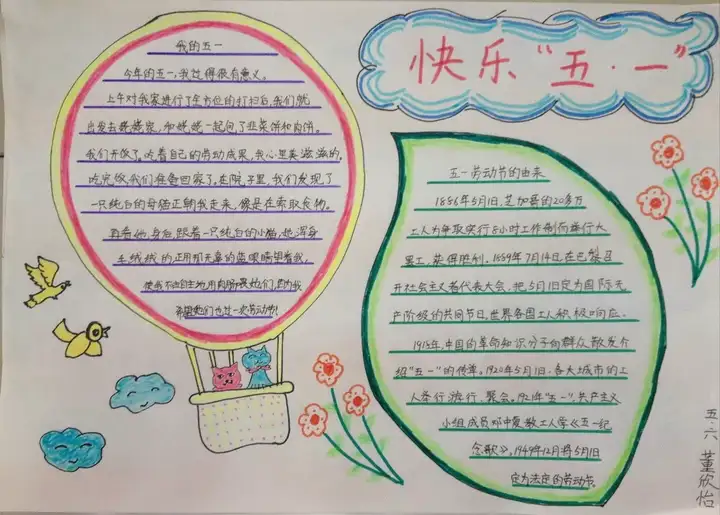 快乐“五·一”
我的五一
今年的五一,我过得很有意义。
上午对我家进行了全方位的打扫后,我们就
出发去姥姥家,和姥姥一起包了韭菜饼和肉饼。
我们开饭了,吃着自己的劳动成果,我心里美滋滋的。
吃完饭,我们准备回家了,在院子里,我们发现了
一只纯白的母猫正朝我走来,像是在索取食物。
再看她,身后跟着一只纯白的小猫,她浑身
毛绒绒的正用那无辜的蓝眼睛望着我,
使我不由自主地用肉饼喂她们,因为我
希望她们也过一次劳动节!
五一劳动节的由来
1886年5月1日,芝加哥的20多万
工人为争取实行8小时工作制而举行大
罢工,获得胜利。1889年7月14日,在巴黎召
开社会主义者代表大会,把5月1日定为国际无
产阶级的共同节日,世界各国工人积极响应。
1915年,中国的革命知识分子向群众散发介
绍“五一”的传单。1920年5月1日,各大城市的工
人举行游行、聚会。1921年“五一”,共产主义
小组成员邓中夏教工人学《五一纪
念歌》。1949年12月将5月1日
定为法定的劳动节。
五.六 董欣怡